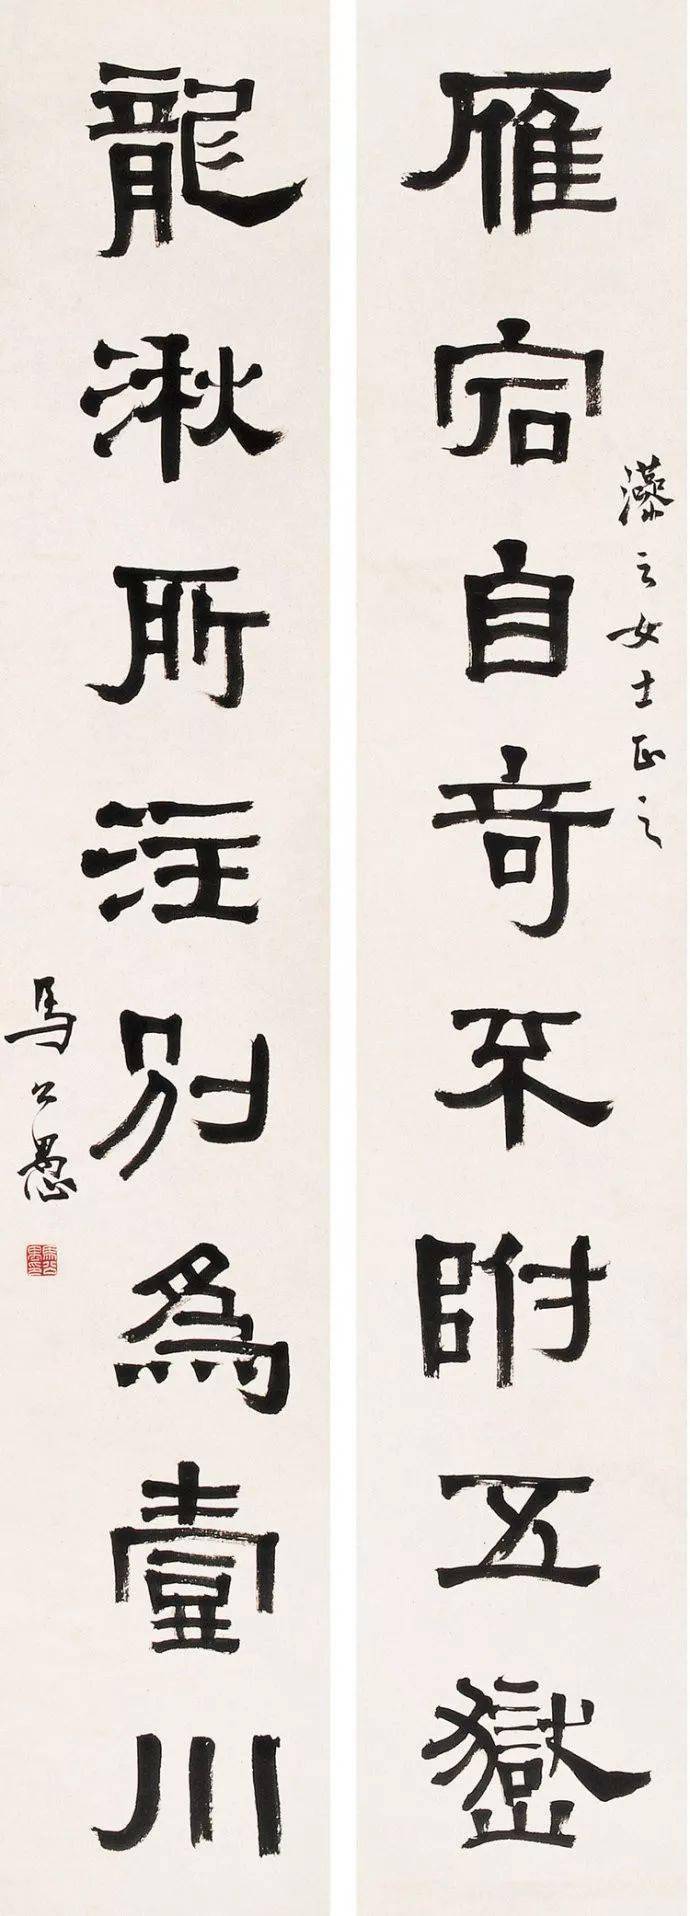 之女士正之
雁宕自奇不附五嶽
龍湫所注別爲壹川
馬公愚
馬公愚印